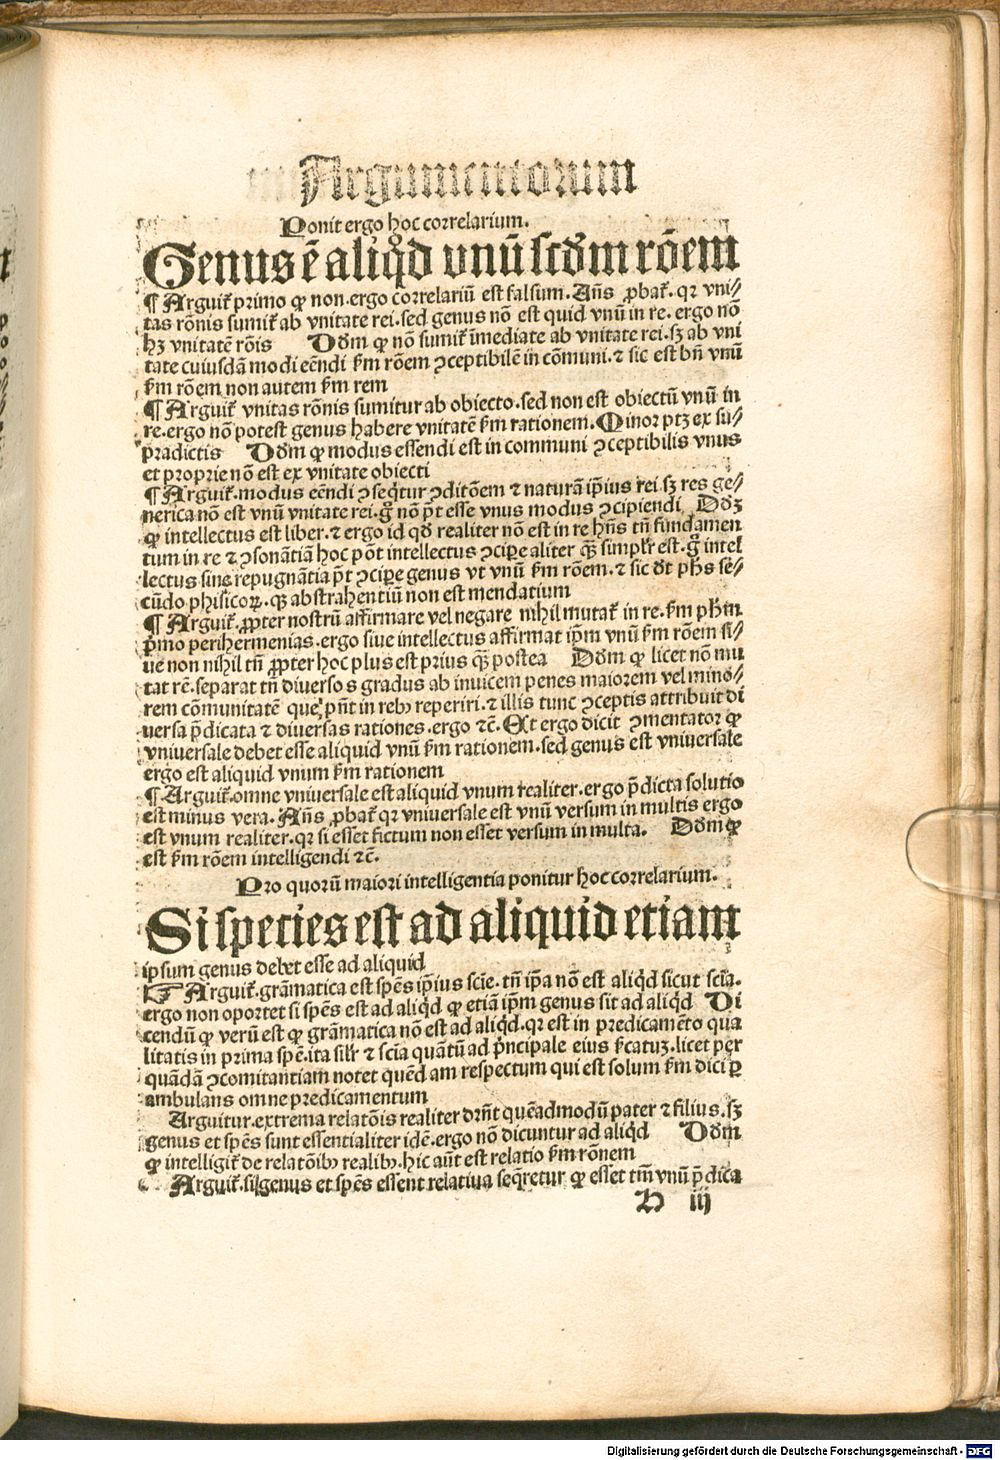 Argumentorum
Ponit ergo hoc correlarium.
Genus ē aliqͦd vnū scdm rōem
¶ Arguit̄ primo ꝙ non.ergo correlariū est falsum. Añs ꝓbat̄. qꝛ vni⸗
tas rōnis sumit̄ ab vnitate rei. sed genus nō est quid vnū in re. ergo nō
hꝫ vnitatē rōis Dd̄m ꝙ nō sumit̄ īmediate ab vnitate rei. sꝫ ab vni
tate cuiusdā modi eēndi ẜm rōem ꝯceptibilē in cōmuni. ⁊ sic est bn̄ vnū
ẜm rōem non autem ẜm rem
¶ Arguit̄ vnitas rōnis sumitur ab obiecto. sed non est obiectū vnū in
re. ergo nō potest genus habere vnitatē ẜm rationem. Minor ptꝫ ex su⸗
pradictis Dd̄m ꝙ modus essendi est in communi ꝯceptibilis vnus
et proprie nō est ex vnitate obiecti
¶ Arguit̄. modus eēndi ꝯseqͥtur ꝯditōem ⁊ naturā ip̄ius rei. sꝫ res ge⸗
nerica nō est vnū vnitate rei. gͦ nō pōt esse vnus modus ꝯcipiendi Dd̄ꝫ
ꝙ intellectus est liber. ⁊ ergo id qd̄ realiter nō est in re hn̄s tn̄ fundamen
tum in re ⁊ ꝯsonātiā hoc pōt intellectus ꝯcipe aliter qꝫ̄ simplr̄ est. gͦ intel
lectus sine repugnātia pōt ꝯcipe genus vt vnū ẜm rōem. ⁊ sic dt̄ ph̄s se⸗
cūdo phisicoꝝ. qꝫ abstrahentiū non est mendatium
¶ Arguit̄. ꝓpter nostrū affirmare vel negare nihil mutat̄ in re. ẜm ph̄m
pͥmo perihermenias. ergo siue intellectus affirmat ip̄m vnū ẜm rōem si⸗
ue non nihil tn̄ ꝓpter hoc plus est prius qꝫ̄ postea Dd̄m ꝙ licet nō mu
tat rē. separat tn̄ diuerso s gradus ab inuicem penes maiorem vel mino⸗
rem cōmunitatē que pn̄t in rebꝫ reperiri. ⁊ illis tunc ꝯceptis attribuit di
uersa p̄dicata ⁊ diuersas rationes. ergo ⁊c̄. Et ergo dicit ꝯmentator ꝙ
vniuersale debet esse aliquid vnū ẜm rationem. sed genus est vniuersale
ergo est aliquid vnum ẜm rationem
¶ Arguit̄. omne vniuersale est aliquid vnum realiter. ergo p̄dicta solutio
est minus vera. Añs ꝓbat̄ qꝛ vniuersale est vnū versum in multis ergo
est vnum realiter. qꝛ si esset fictum non esset versum in multa. Dd̄m ꝙ
est ẜm rōem intelligendi ⁊c̄.
Pro quorū maiori intelligentia ponitur hoc correlarium.
Si species est ad aliquid etiam
ipsum genus debet esse ad aliquid
¶ Arguit̄. grāmatica est spēs ip̄ius scīe. tn̄ ip̄a nō est aliqͥd sicut scīa.
ergo non oportet si spēs est ad aliqͥd ꝙ etiā ip̄m genus sit ad aliqͥd Di
cendū ꝙ verū est ꝙ grāmatica nō est ad aliqͥd. qꝛ est in predicamēto qua
litatis in prima spē. ita silr̄ ⁊ scīa quātū ad pͥncipale eius ẜcatuꝫ. licet per
quādā ꝯcomitantiam notet quēd am respectum qui est solum ẜm dici ꝑ
ambulans omne predicamentum
Arguitur. extrema relatōis realiter drn̄t quēadmodū pater ⁊ filius. sꝫ
genus et spēs sunt essentialiter idē. ergo nō dicuntur ad aliqͥd Dd̄m
ꝙ intelligit̄ de relatōibꝫ realibꝫ. hic aūt est relatio ẜm rōnem
Arguit̄. si genus et spēs essent relatiua seqͥretur ꝙ esset tm̄ vnū p̄dica
H iij
Digitalisierung gefördert durch die Deutsche Forschungsgemeinschaft - DFG